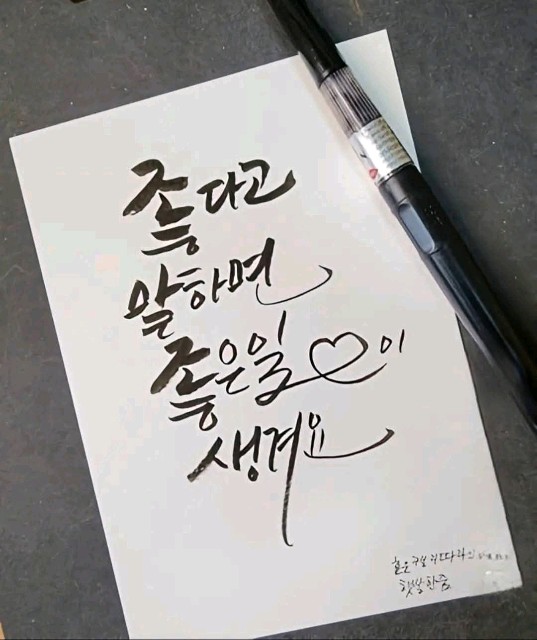 좋다고
말하면
좋은일♡이
생겨요
좋은구절
햇살한줌